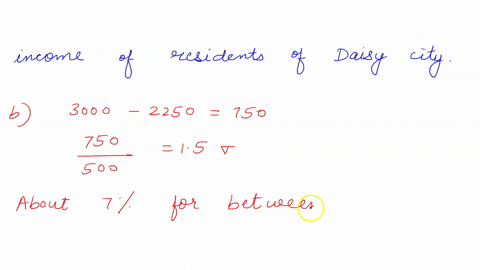 income of residents of Daisy city.
b) 3000 - 2250 = 750
750
500
= 1.5 σ
About 7% for between